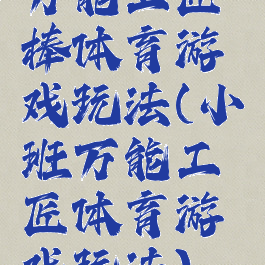 万能工匠
棒体育游
戏玩法(小
班万能工
匠体育游
戏玩法)